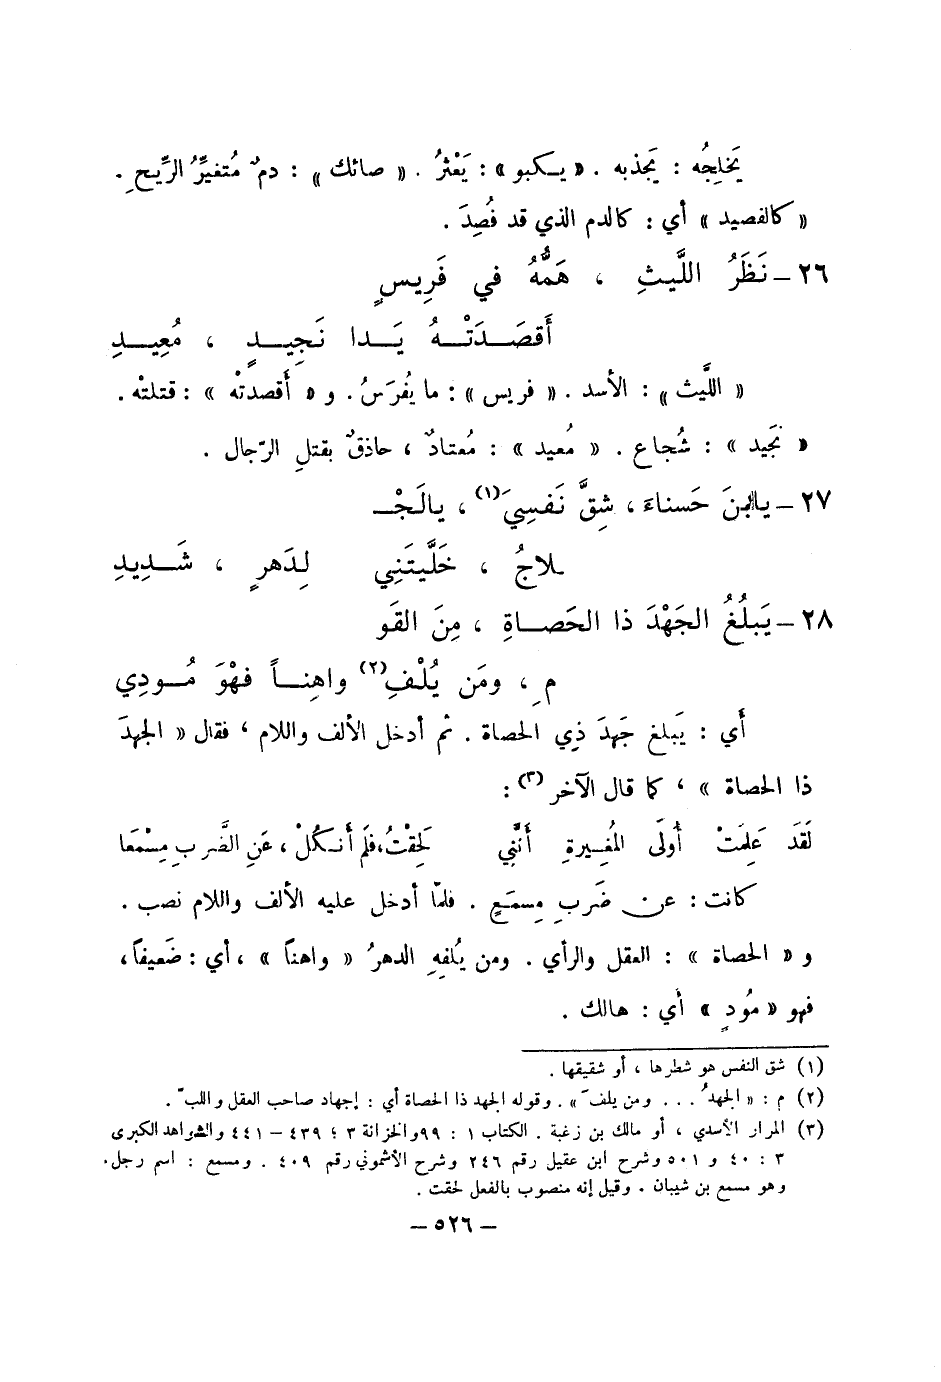 يَخلِجُه : يَجذبه . « يـكبو » : يَعْثرُ . « صائك » : دمٌ مُتغيِّرُ الرِّيحِ .
« كالفصيد » أي : كالدم الذي قد فُصِدَ .
٢٦ – نَظَرُ اللَّيثِ ، هَمُّهُ في فَرِيسٍ
أَقصَـدَتْـهُ يَـدا نَجِيـدٍ ، مُعِيـدِ
« اللَّيث » : الأسد . « فريس » : ما يُفرَسُ . و « أَقصدتْه » : قتلتْه .
« نَجيد » : شُجاع . « مُعيد » : مُعتادٌ ، حاذقٌ بقتلِ الرّجال .
٢٧ – يا ابنَ حَسناءَ ، شِقَّ نَفسِيَ (١) ، يالَجْـ
ـلاجُ ، خَلَّيتَنِي لِدَهرٍ ، شَـدِيدِ
٢٨ – يَبلُغُ الجَهْدَ ذا الحَصـاةِ ، مِنَ القَو
مِ ، ومَن يُلْفِ (٢) واهِنـاً فهْوَ مُـودِي
أَي : يَبلغ جَهدَ ذِي الحصاة . ثم أدخل الألف واللام ، فقال « الجهدَ
ذا الحصاة » ، كما قال الآخر (٣) :
لَقَد عَلِمَتْ أُولَى المُغِيرةِ أَنَّنِي لَحِقْتُ، فلَم أَنـكُلْ ، عَنِ الضَّربِ مِسْمَعا
كانت : عن ضَربِ مِسمَعٍ . فلمّا أدخل عليه الألف واللام نصب .
و « الحصاة » : العقل والرأي . ومن يُلفِهِ الدهرُ « واهناً » ، أي : ضَعيفاً ،
فهو « مُودٍ » أي : هالك .
(١) شق النفس هو شطرها ، أو شقيقها .
(٢) م : « الجهدُ . . . ومن يلفَ » . وقوله الجهد ذا الحصاة أي : إجهاد صاحب العقل واللبّ .
(٣) المرار الأسدي ، أو مالك بن زغبة . الكتاب ١ : ٩٩ والخزانة ٣ : ٤٣٩ – ٤٤١ والشواهد الكبرى
٣ : ٤٠ و ٥٠١ وشرح ابن عقيل رقم ٢٤٦ وشرح الأشموني رقم ٤٠٩ . ومسمع : اسم رجل .
وهو مسمع بن شيبان . وقيل إنه منصوب بالفعل لحقت .
– ٥٢٦ –